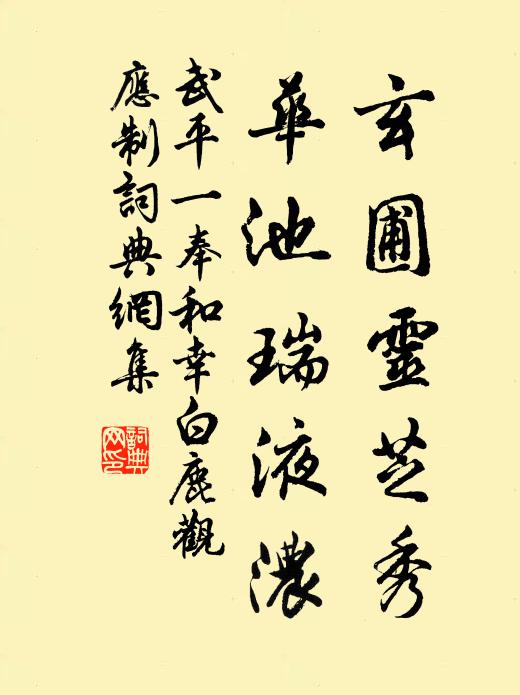 玄圃靈芝秀
華池瑞液濃
武平一奉和幸白鹿觀
應制詞典網集
詞典
网印